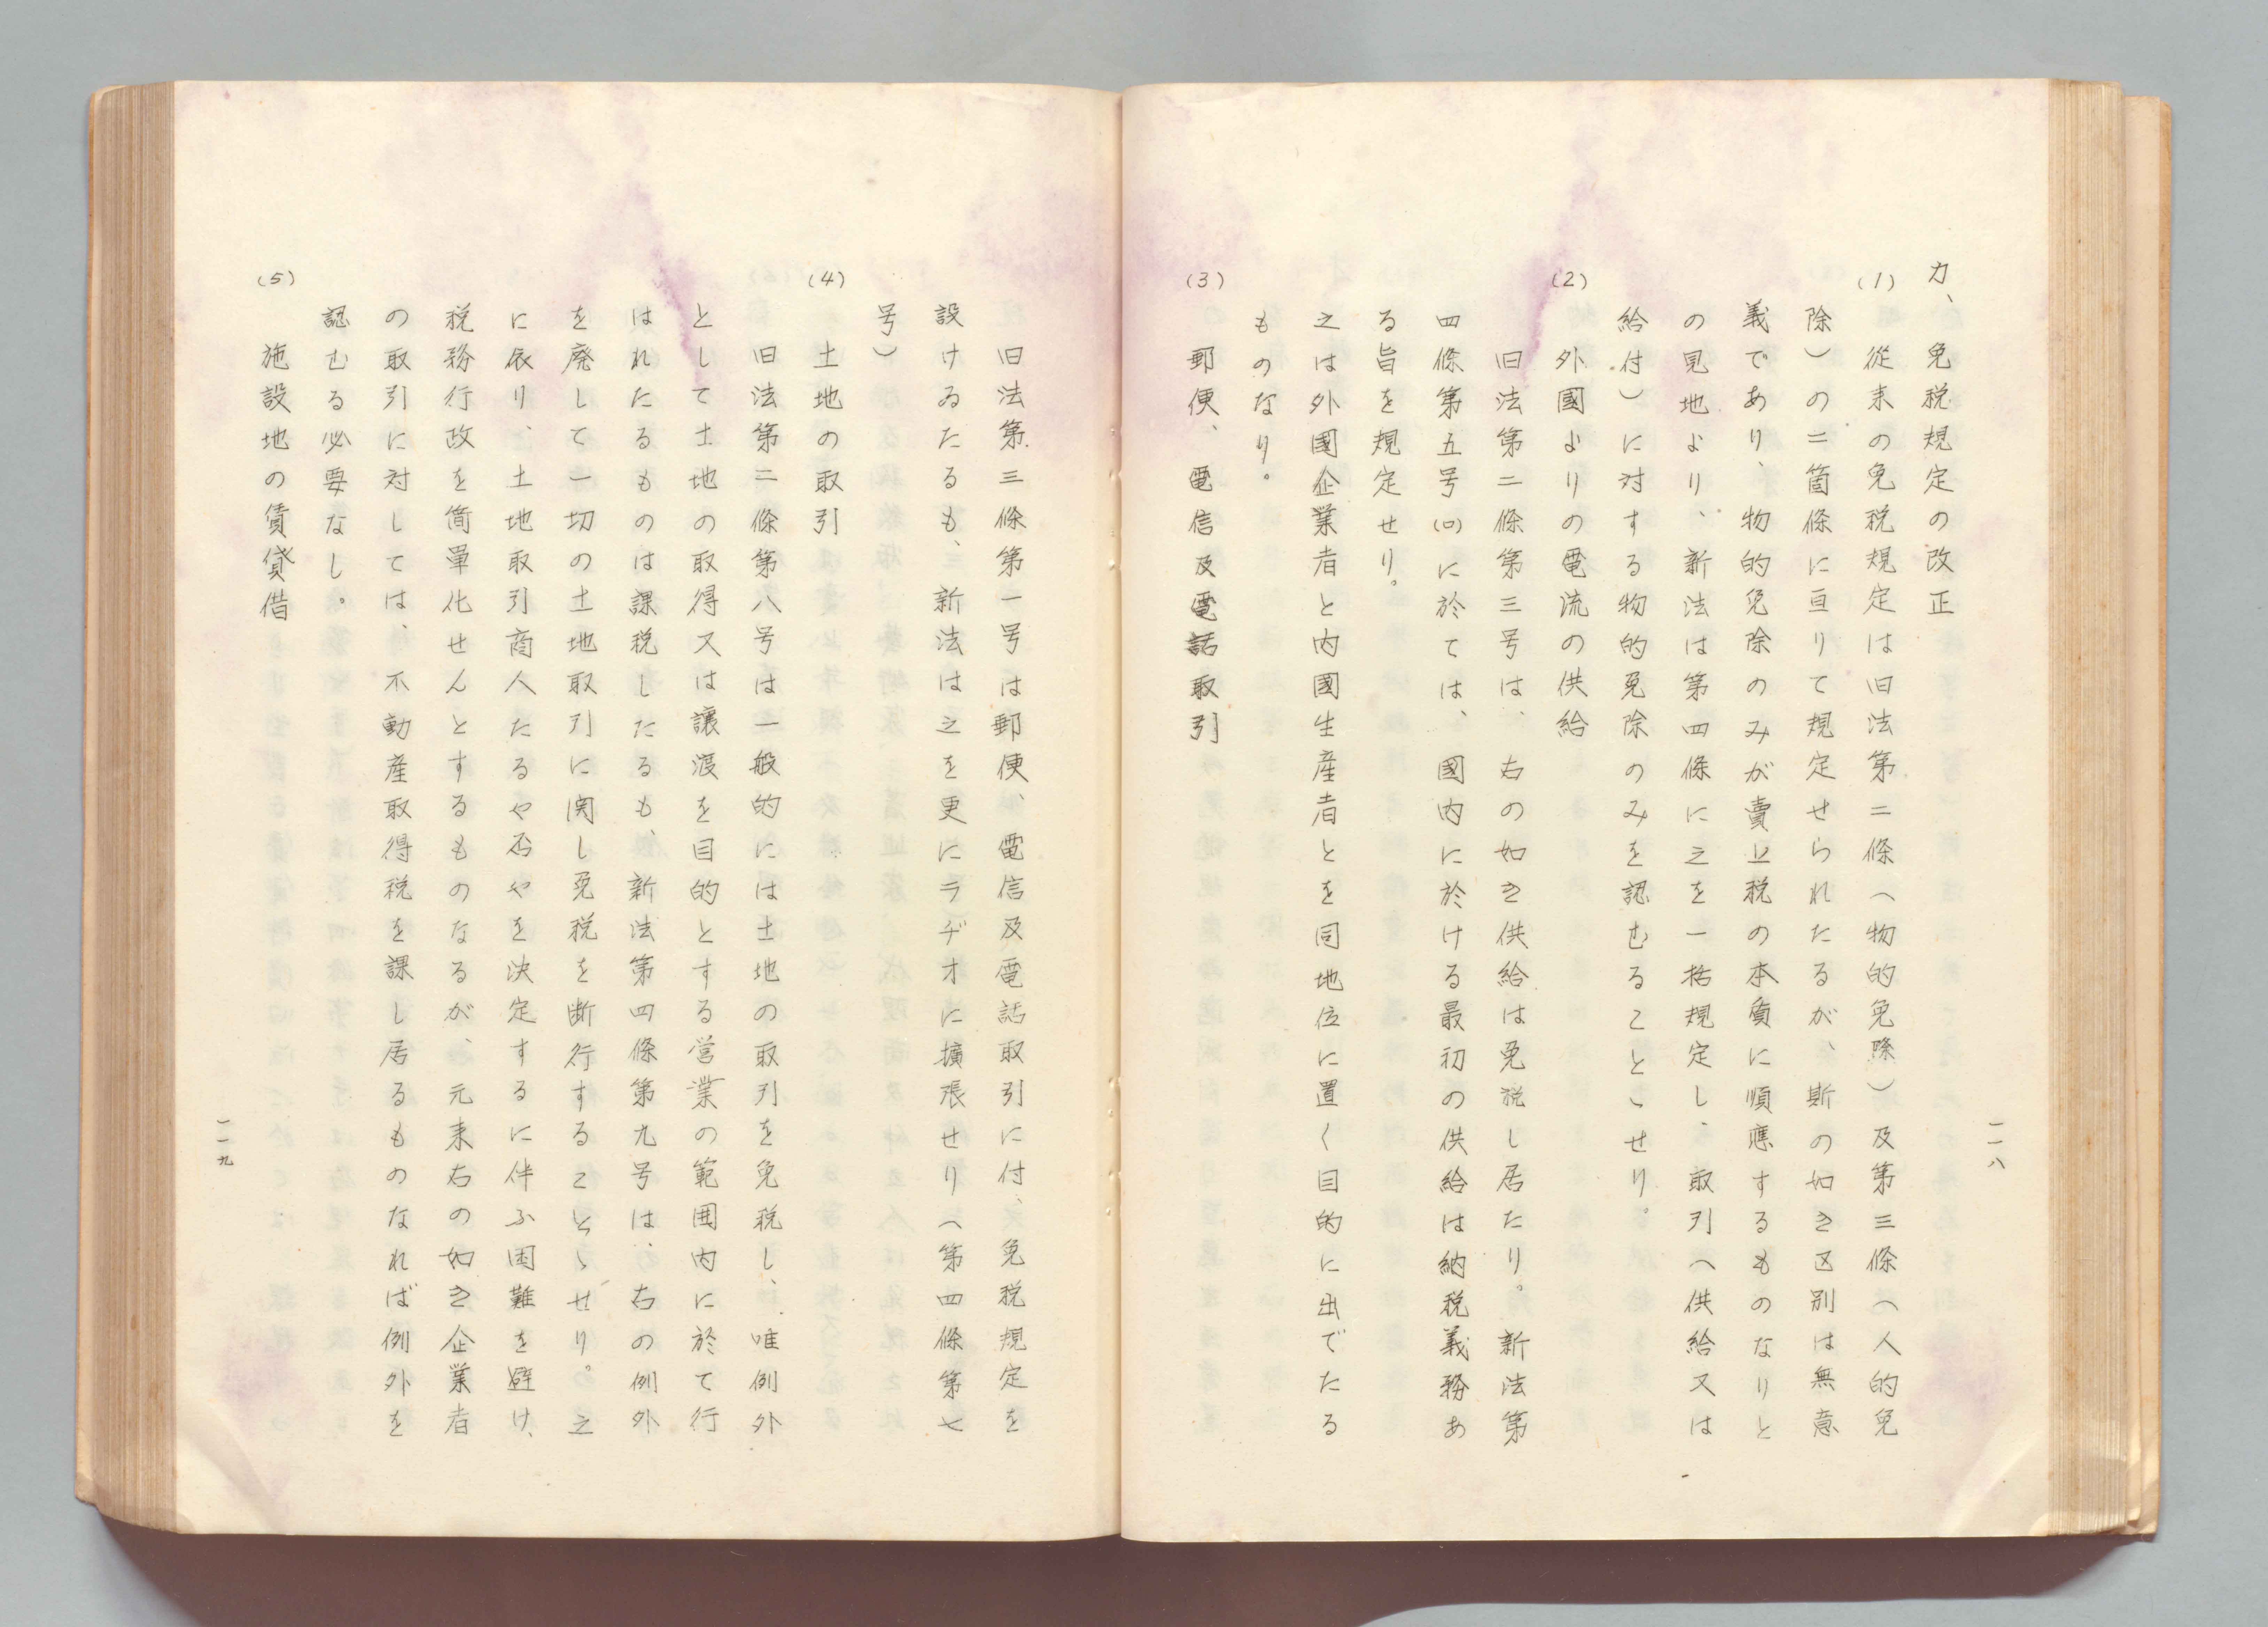 一一八
カ、免税規定の改正
(1) 従来の免税規定は旧法第二條(物的免除)及第三條(人的免
除)の二箇條に亘りて規定せられたるが、斯の如き区別は無意
義であり、物的免除のみが賣上税の本質に順應するものなりと
の見地より、新法は第四條に之を一括規定し、取引(供給又は
給付)に対する物的免除のみを認むることゝせり。
(2) 外國よりの電流の供給
旧法第二條第三号は、右の如き供給は免税し居たり。新法第
四條第五号(ロ)に於ては、國内に於ける最初の供給は納税義務あ
る旨を規定せり。
之は外國企業者と内國生産者とを同地位に置く目的に出でたる
ものなり。
(3) 郵便、電信及電話取引
旧法第三條第一号は郵便、電信及電話取引に付、免税規定を
設けゐたるも、新法は之を更にラヂオに擴張せり(第四條第七
号)
(4) 土地の取引
旧法第二條第八号は一般的には土地の取引を免税し、唯例外
として土地の取得又は讓渡を目的とする営業の範囲内に於て行
はれたるものは課税したるも、新法第四條第九号は、右の例外
を廃して一切の土地取引に関し免税を断行することゝせり。之
に依り、土地取引商人たるや否やを決定するに伴ふ困難を避け、
税務行政を簡單化せんとするものなるが、元来右の如き企業者
の取引に対しては、不動産取得税を課し居るものなれば例外を
認むる必要なし。
(5) 施設地の賃貸借
一一九